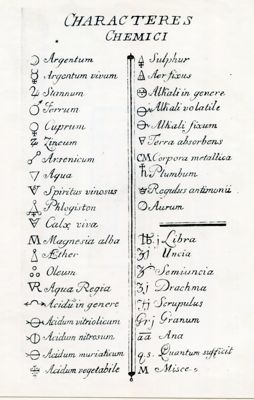 CHARACTERES
CHEMICI
Argentum
Argentum vivum
Stannum
Ferrum
Cuprum
Zincum
Arsenicum
Aqua
Spiritus vinosus
Phlogiston
Calx viva
Magnesia alba
Æther
Oleum
Aqua Regia
Acidū in genere
Acidum vitriolicum
Acidum nitrosum
Acidum muriaticum
Acidum vegetabile
Sulphur
Aer fixus
Alkali in genere
Alkali volatile
Alkali fixum
Terra absorbens
CM Corpora metallica
Plumbum
Regulus antimonii
Aurum
℔j Libra
℥j Uncia
Semiuncia
ʒj Drachma
℈j Scrupulus
Grj Granum
āā Ana
q.s. Quantum sufficit
M Misce